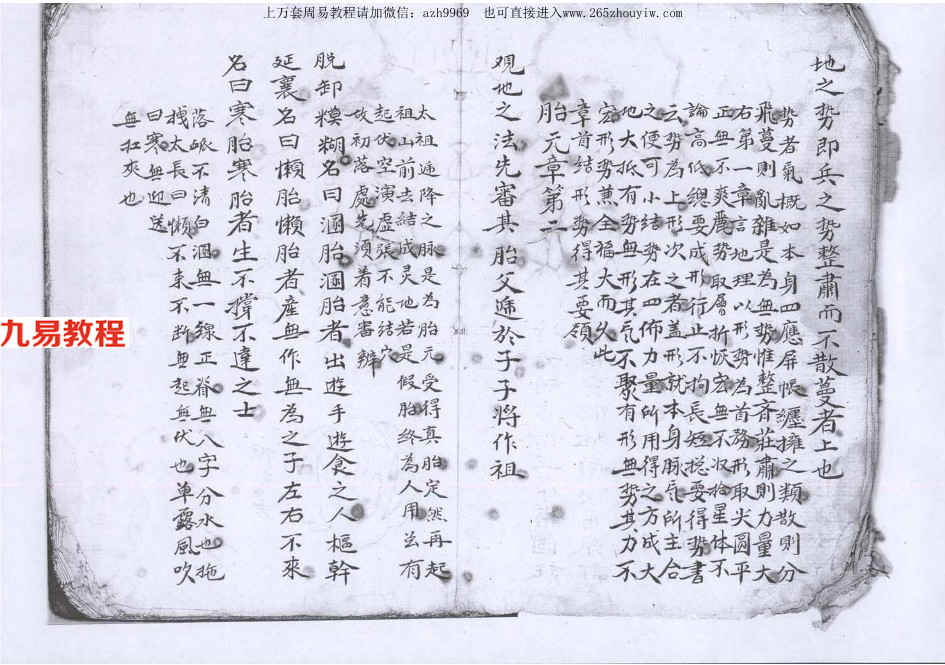 上万套周易教程请加微信：azh9969 也可直接进入www.265zhouyiw.com
地之势即兵之势整肅而不散蔓者上也
势者氣概如本身四應屏帳纒擁之類散則分
飛蔓則亂雜是為無势惟整齐莊肅則力量大
右第一章言地理以形势為首務形取尖圓平
正無不爽麗势取層折恢宏無不收拾星体不
論高低緦要成形行止不拘長短摠要得势書
云势為上形次之者盖形就本身脉气所主合
之便可小结势在四佈力量所用得之方成大
地大抵有势無形其气不聚有形無势其力不
宏形势蒸全福大而久此
章首结形势得其要領
胎元章第二
观地之法先審其胎父遞於子子将作祖
太祖遞降之脉是為胎元受得真胎定然再起
祖山前去结成灵地若是假胎終為人用並有
起伏空演虚張不能结穴
故初落處先須着意審辨
脱卸糢糊名曰溷胎溷胎者出遊手遊食之人樞幹
延襄名曰懒胎懒胎者産無作無為之子左右不來
名曰寒胎寒胎者生不撐不達之士
落脉不清白溷無一線正脊無八字分水也拖
拽太長曰懒不来不断無起無伏也单露風吹
曰寒無迎送
無扛夾也
九易教程